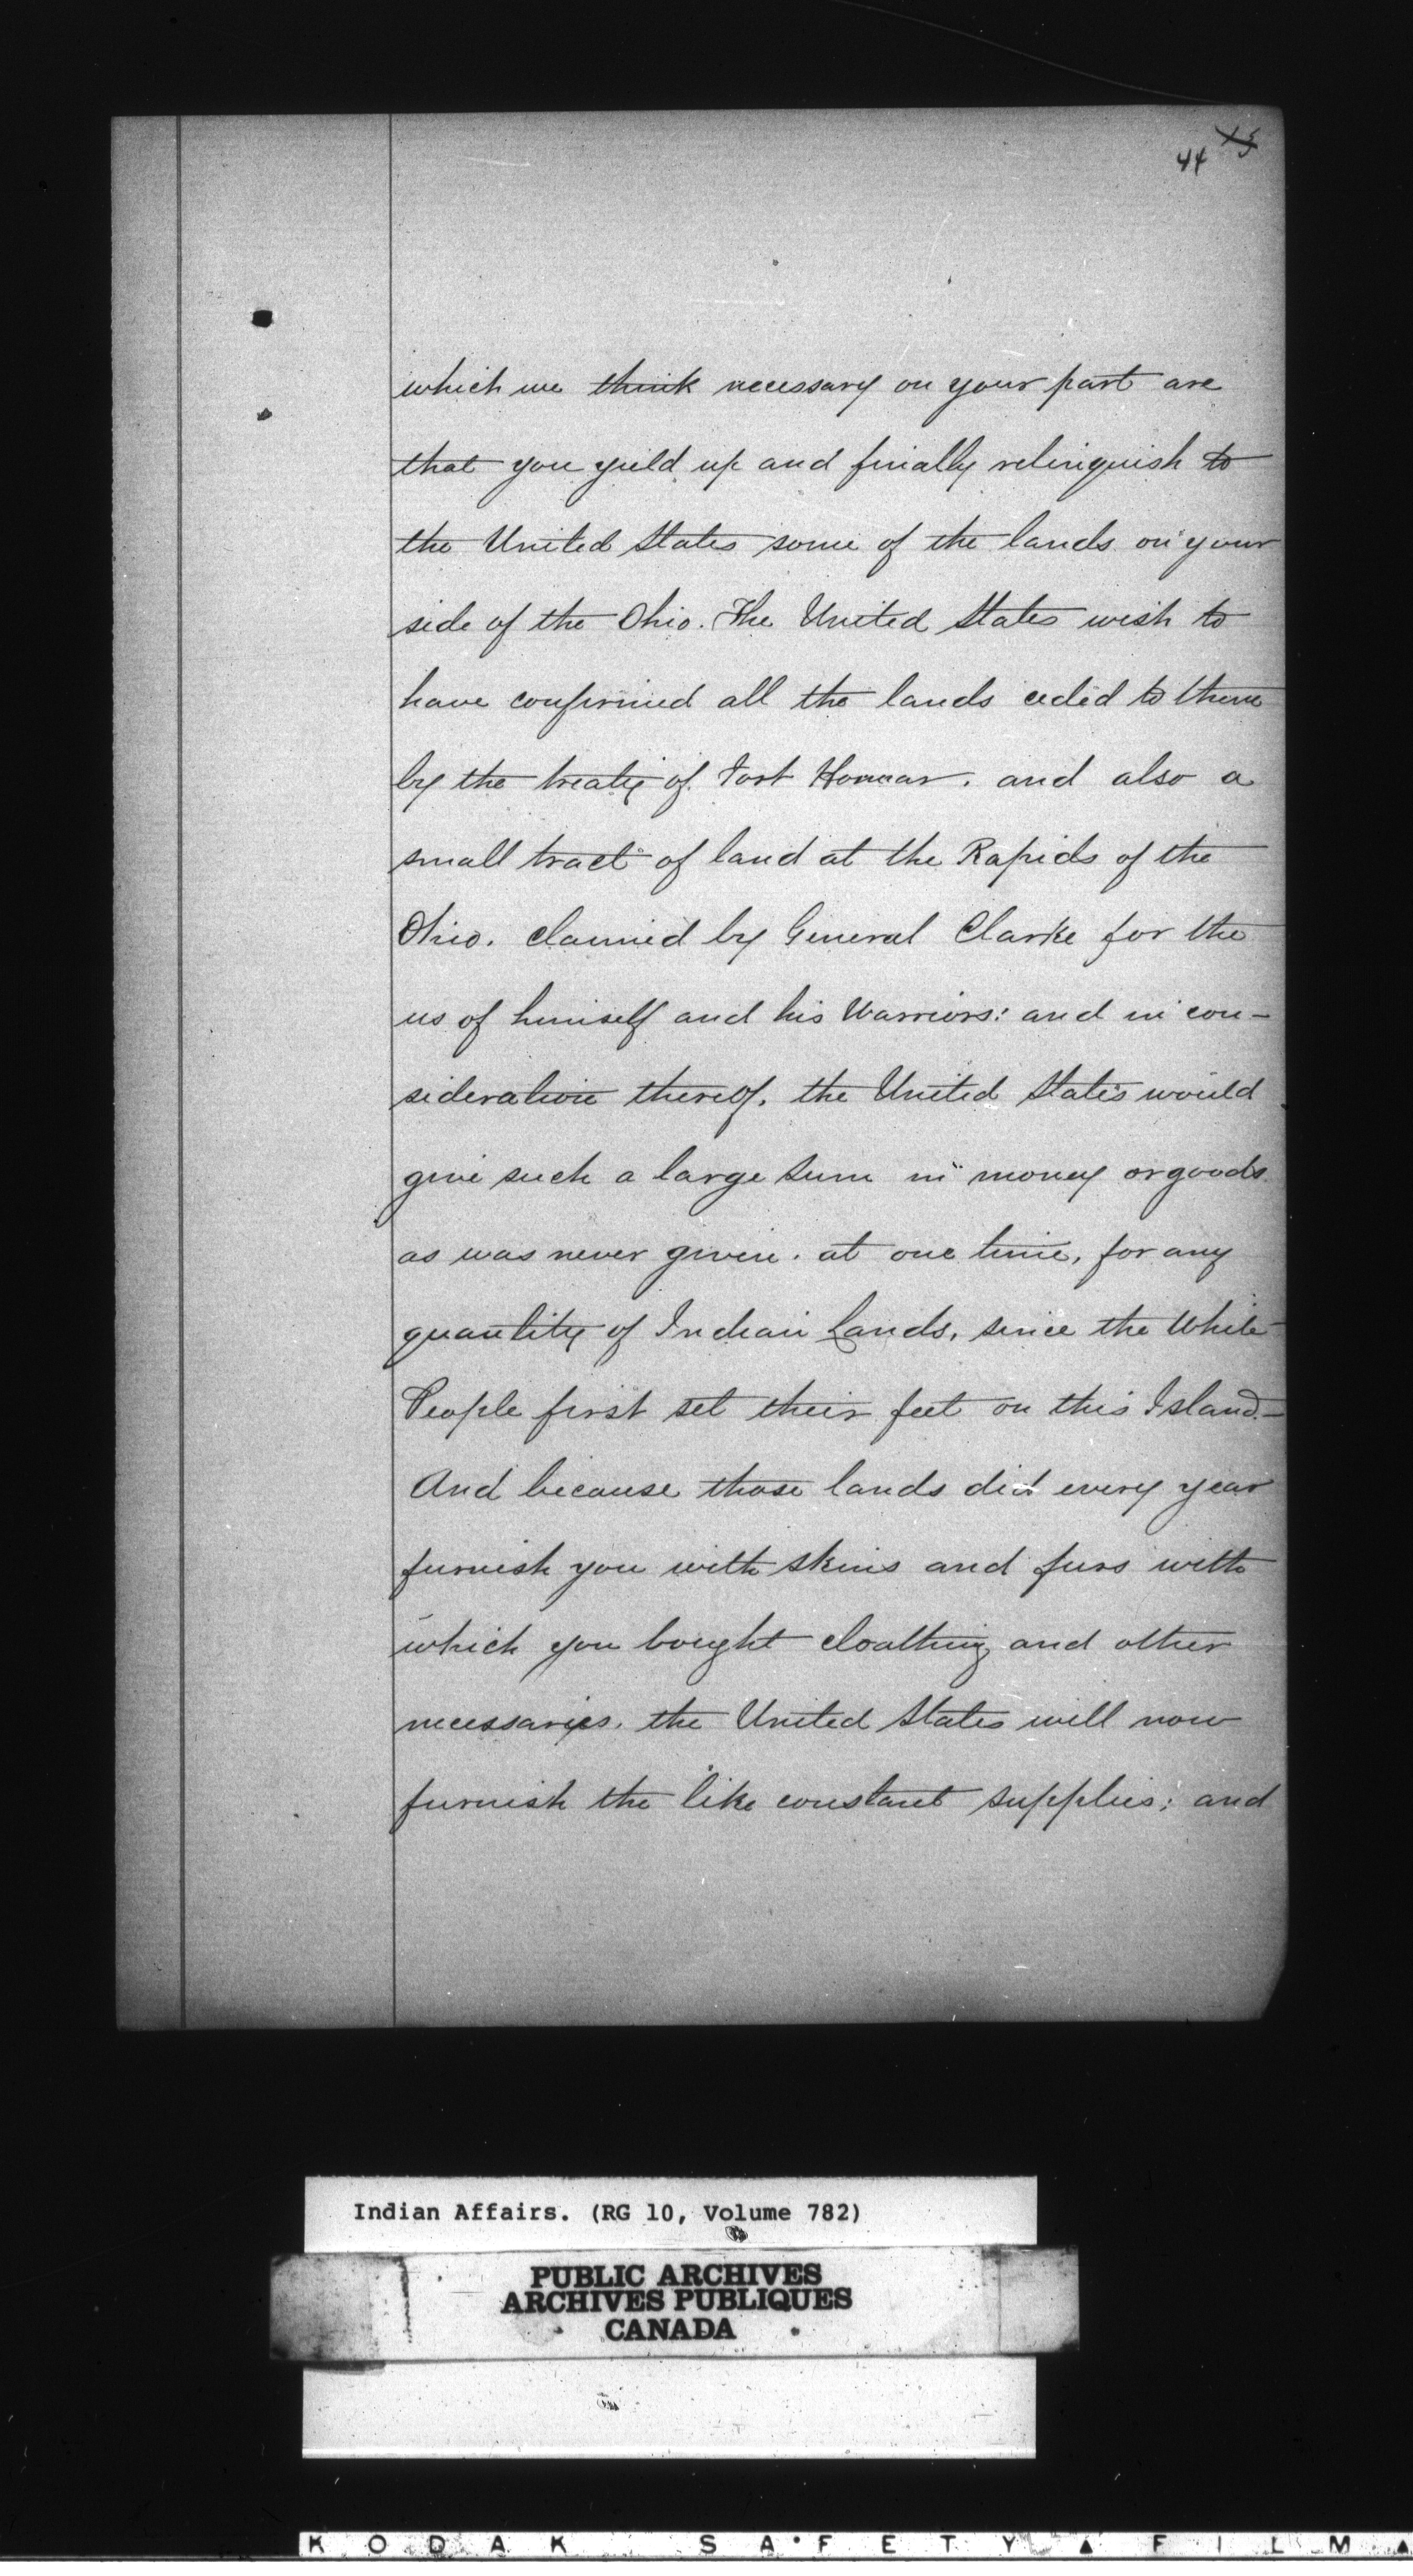 44
which we think necessary on your part are
that you yield up and finally relinquish to
the United States some of the lands on your
side of the Ohio. The United States wish to
have confirmed all the lands ceded to them
by the treaty of Fort Harmar. and also a
small tract of land at the Rapids of the
Ohio. claimed by General Clarke for the
us of himself and his Warriors: and in con-
sideration thereof. the United States would
give such a large sum in money or goods
as was never given. at one time, for any
quantity of Indian Lands, since the White
People first set their feet on this Island-
And because those lands did every year
furnish you with skins and furs with
which you bought cloathing and other
necessaries. the United States will now
furnish the like constant supplies; and
Indian Affairs. (RG 10, Volume 782)
PUBLIC ARCHIVES
ARCHIVES PUBLIQUES
CANADA
KODAK SAFETY FILM